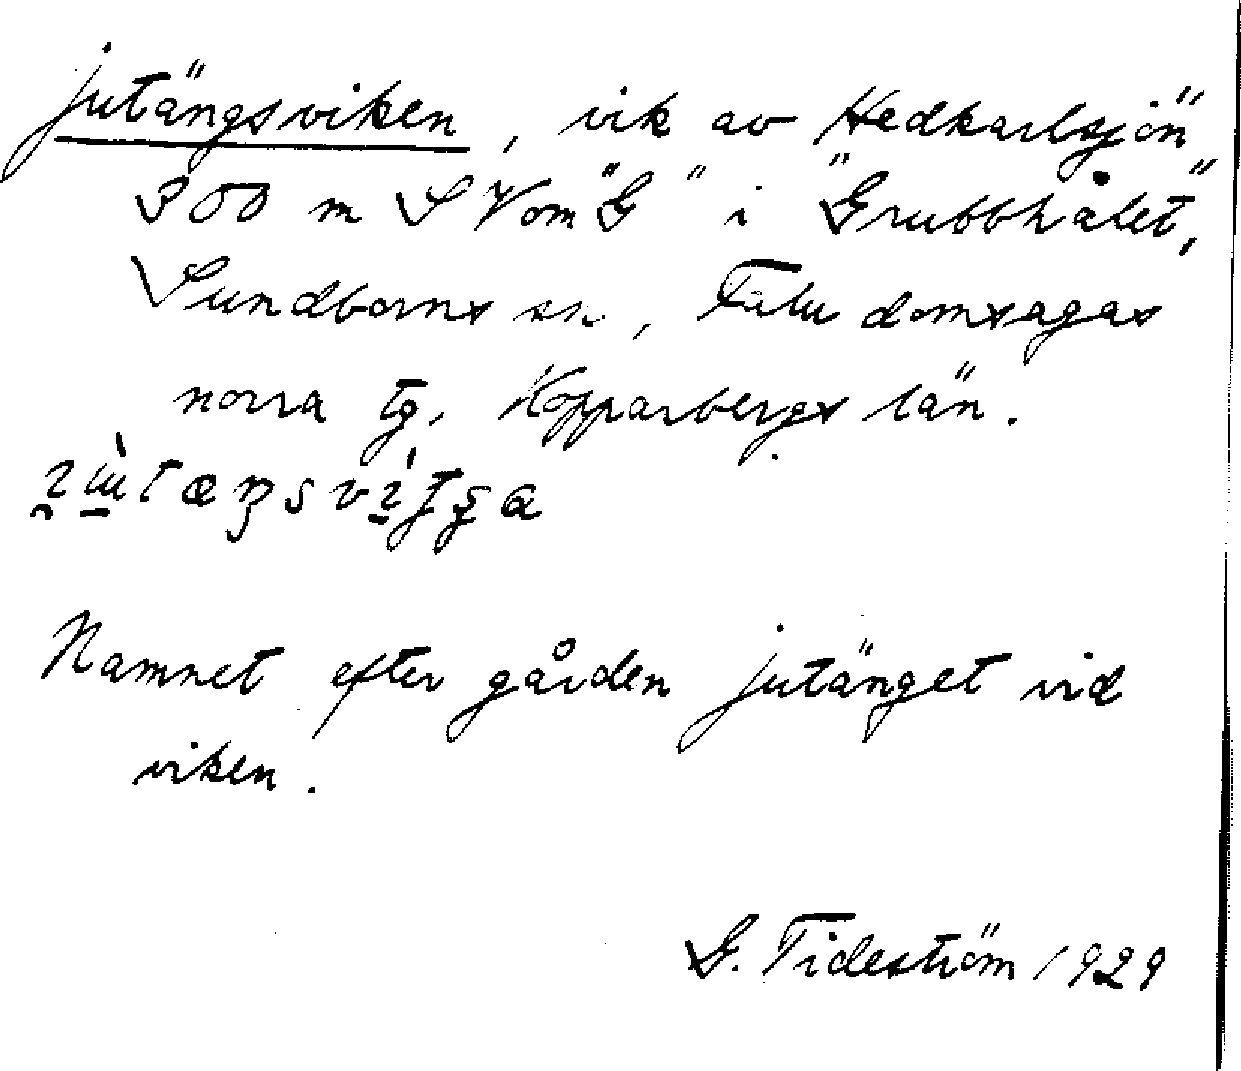 Jutängsviken, vik av Hedkarlsjön
300 m SV om "G" i "Grubbhålet",
Sundborns sn, Falu domsagas
norra tg, Kopparbergs län.
Namnet efter gården Jutänget vid
viken.
G. Tideström 1929